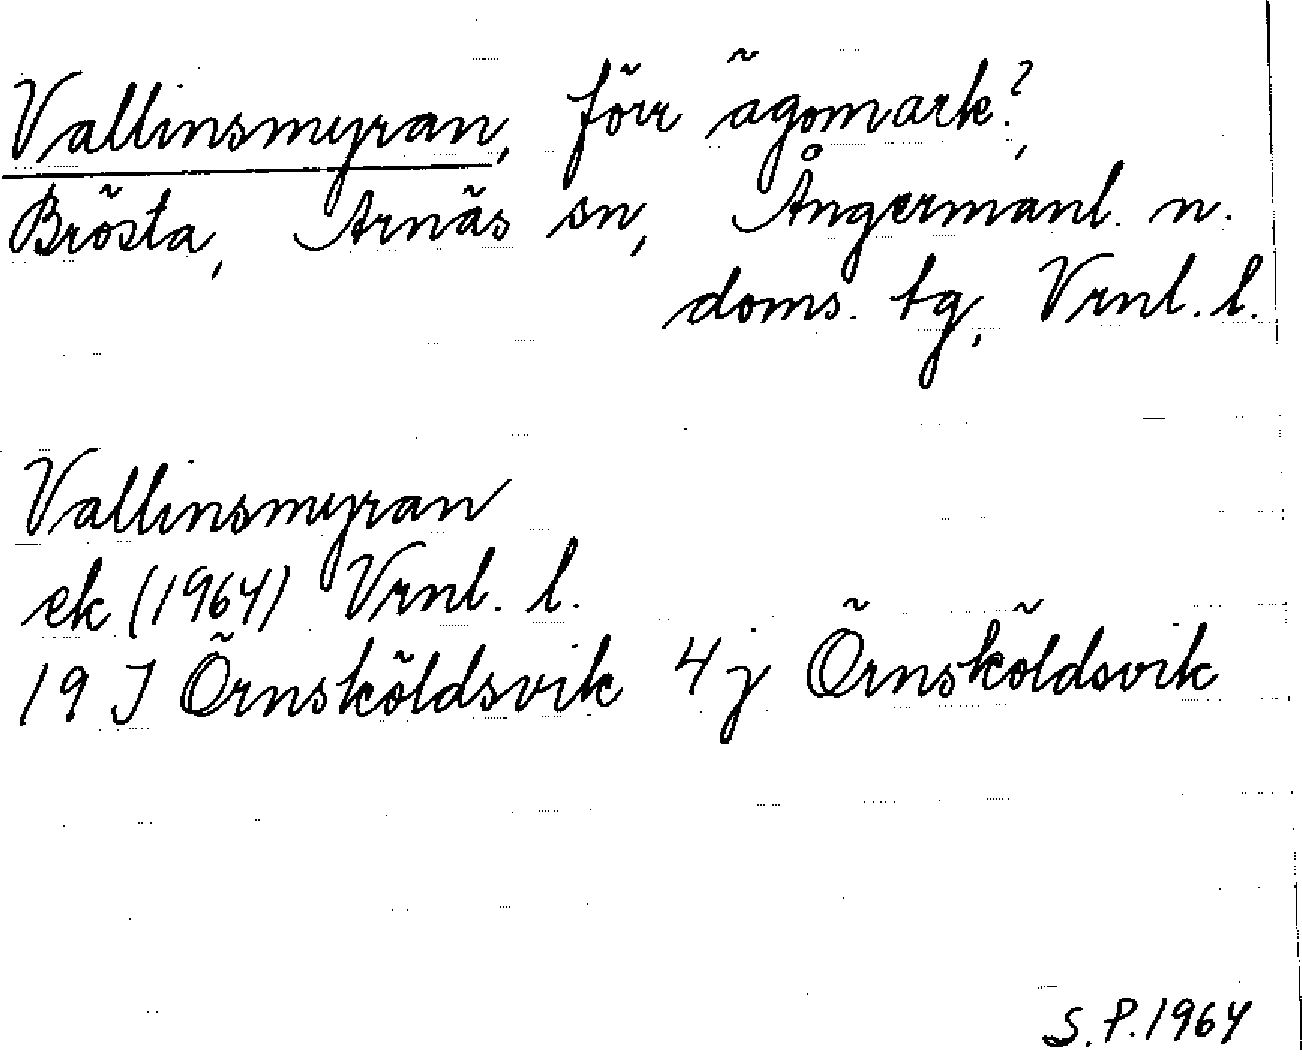 Vallinsmyran, förr ägomark?,
Brösta, Arnäs sn, Ångermanl. n.
doms. tg, Vrnl. l.
Vallinsmyran
ek (1964) Vrnl. l.
19 J Örnsköldsvik 4 j Örnsköldsvik
S. P. 1964